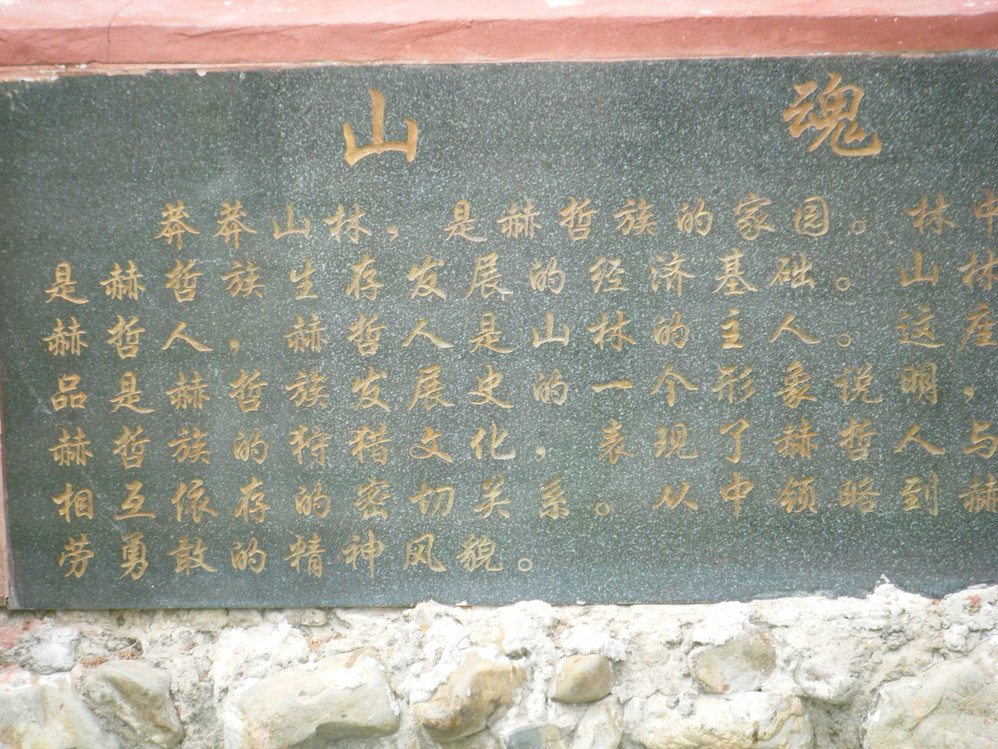 山 魂
莽莽山林，是赫哲族的家园。林中
是赫哲族生存发展的经济基础。山林
赫哲人，赫哲人是山林的主人。这座
品是赫哲族发展史的一个形象说明，
赫哲族的狩猎文化，表现了赫哲人与
相互依存的密切关系。从中领略到赫
劳勇敢的精神风貌。